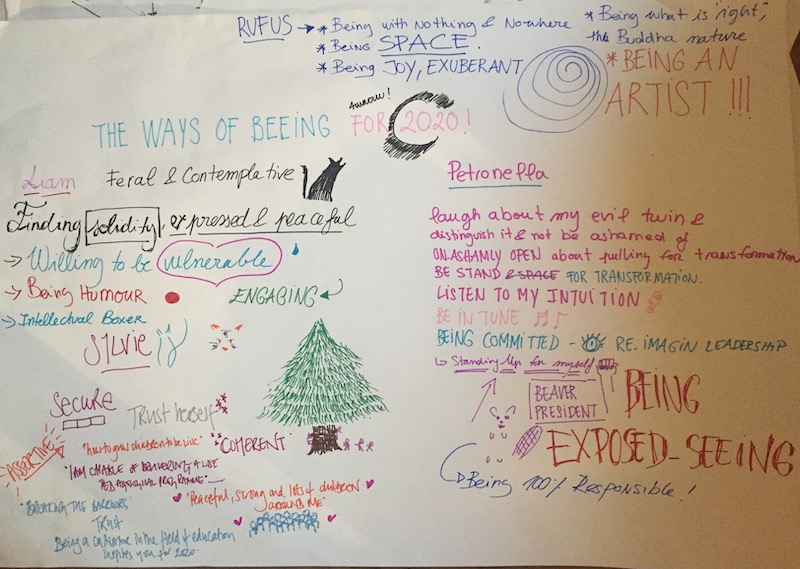 RUFUS → * Being with Nothing & Nowhere
* Being SPACE.
* Being JOY, EXUBERANT
* Being what is "right",
the Buddha nature
* BEING AN
ARTIST !!!
THE WAYS OF BEEING FOR 2020!
Liam Feral & Contemplative
Finding solidity, expressed & peaceful
→ Willing to be vulnerable
→ Being Humour
→ Intellectual Boxer
ENGAGING
SYLVIE
Secure
TRUST herself
ASSERTIVE
"COHERENT"
"I AM CAPABLE OF DELIVERING A LIFE
PEDAGOGICAL PROGRAMME"
"Peaceful, strong and lots of children
AROUND ME"
"BREAKING THE BARRIERS"
TRUST
Being a cultivator in the field of education
inspires you for 2020.
Petronella
laugh about my evil twin &
distinguish it & not be ashamed of
UNASHAMLY OPEN about pulling for transformation
BE STAND & SPACE FOR TRANSFORMATION.
LISTEN TO MY INTUITION
BE IN TUNE
BEING COMMITTED - RE.IMAGIN LEADERSHIP
↳ Standing Up for myself
BEAVER
PRESIDENT
BEING
EXPOSED_SEEING
Being 100% Responsible!